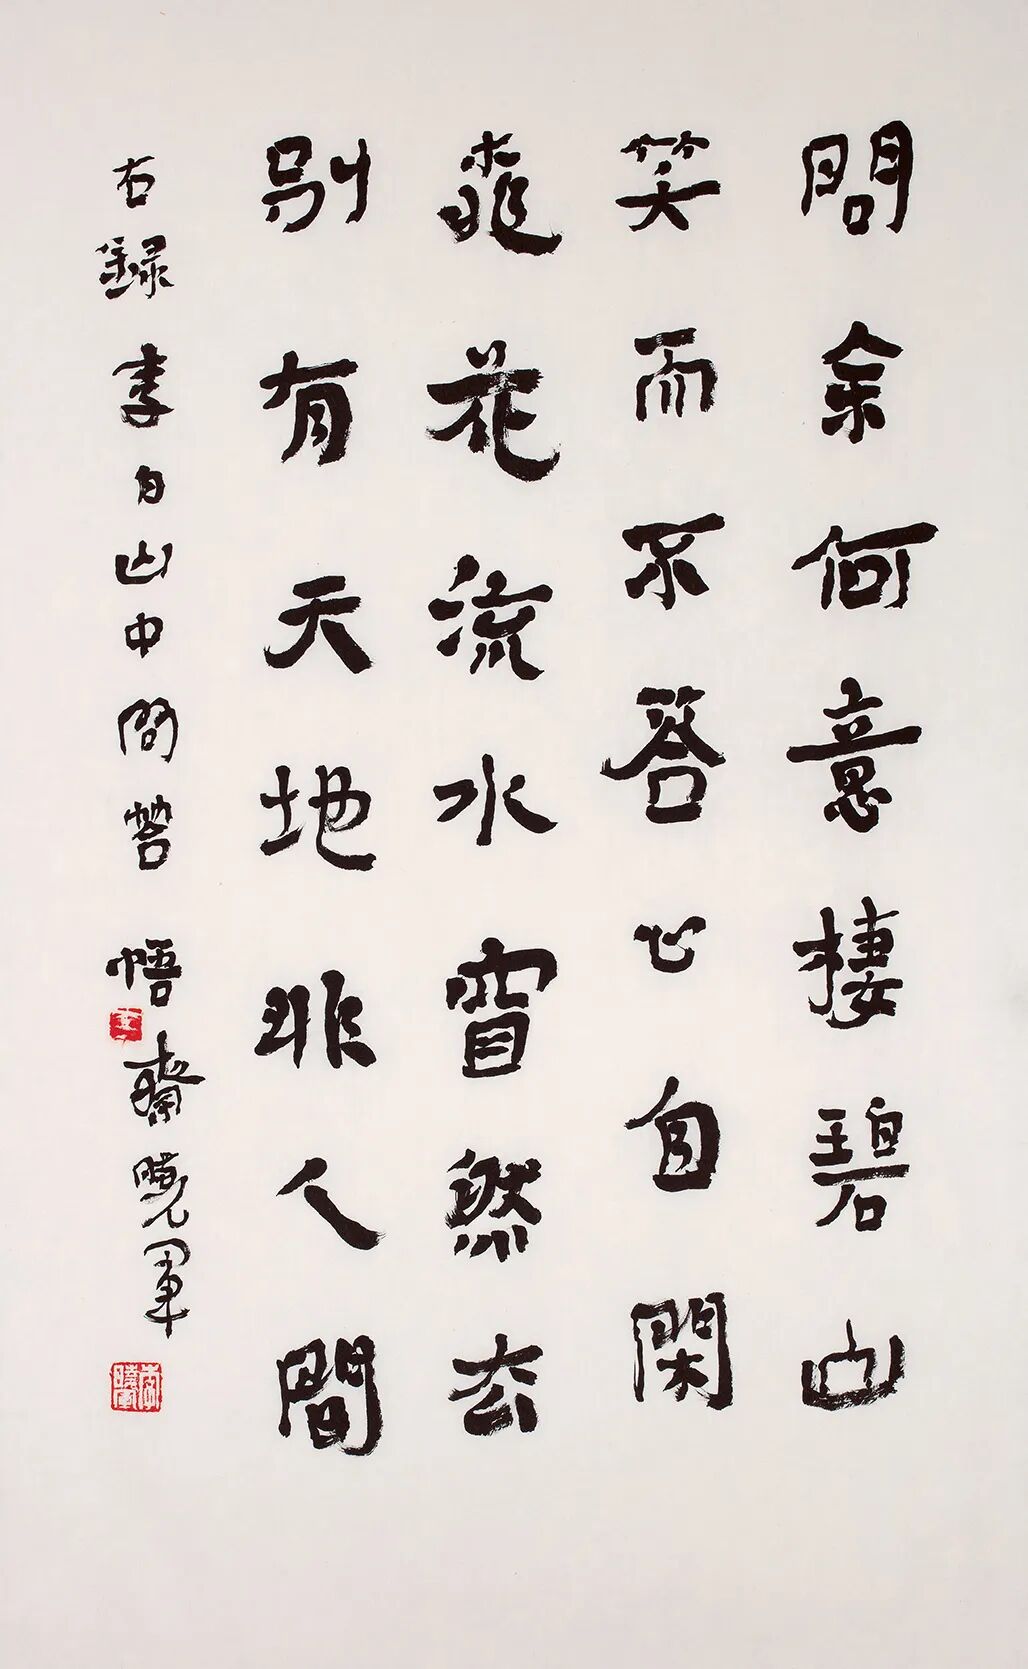 問余何意棲碧山
笑而不答心自閑
桃花流水窅然去
別有天地非人間
右錄李白山中問答 悟齋曉軍
李曉軍